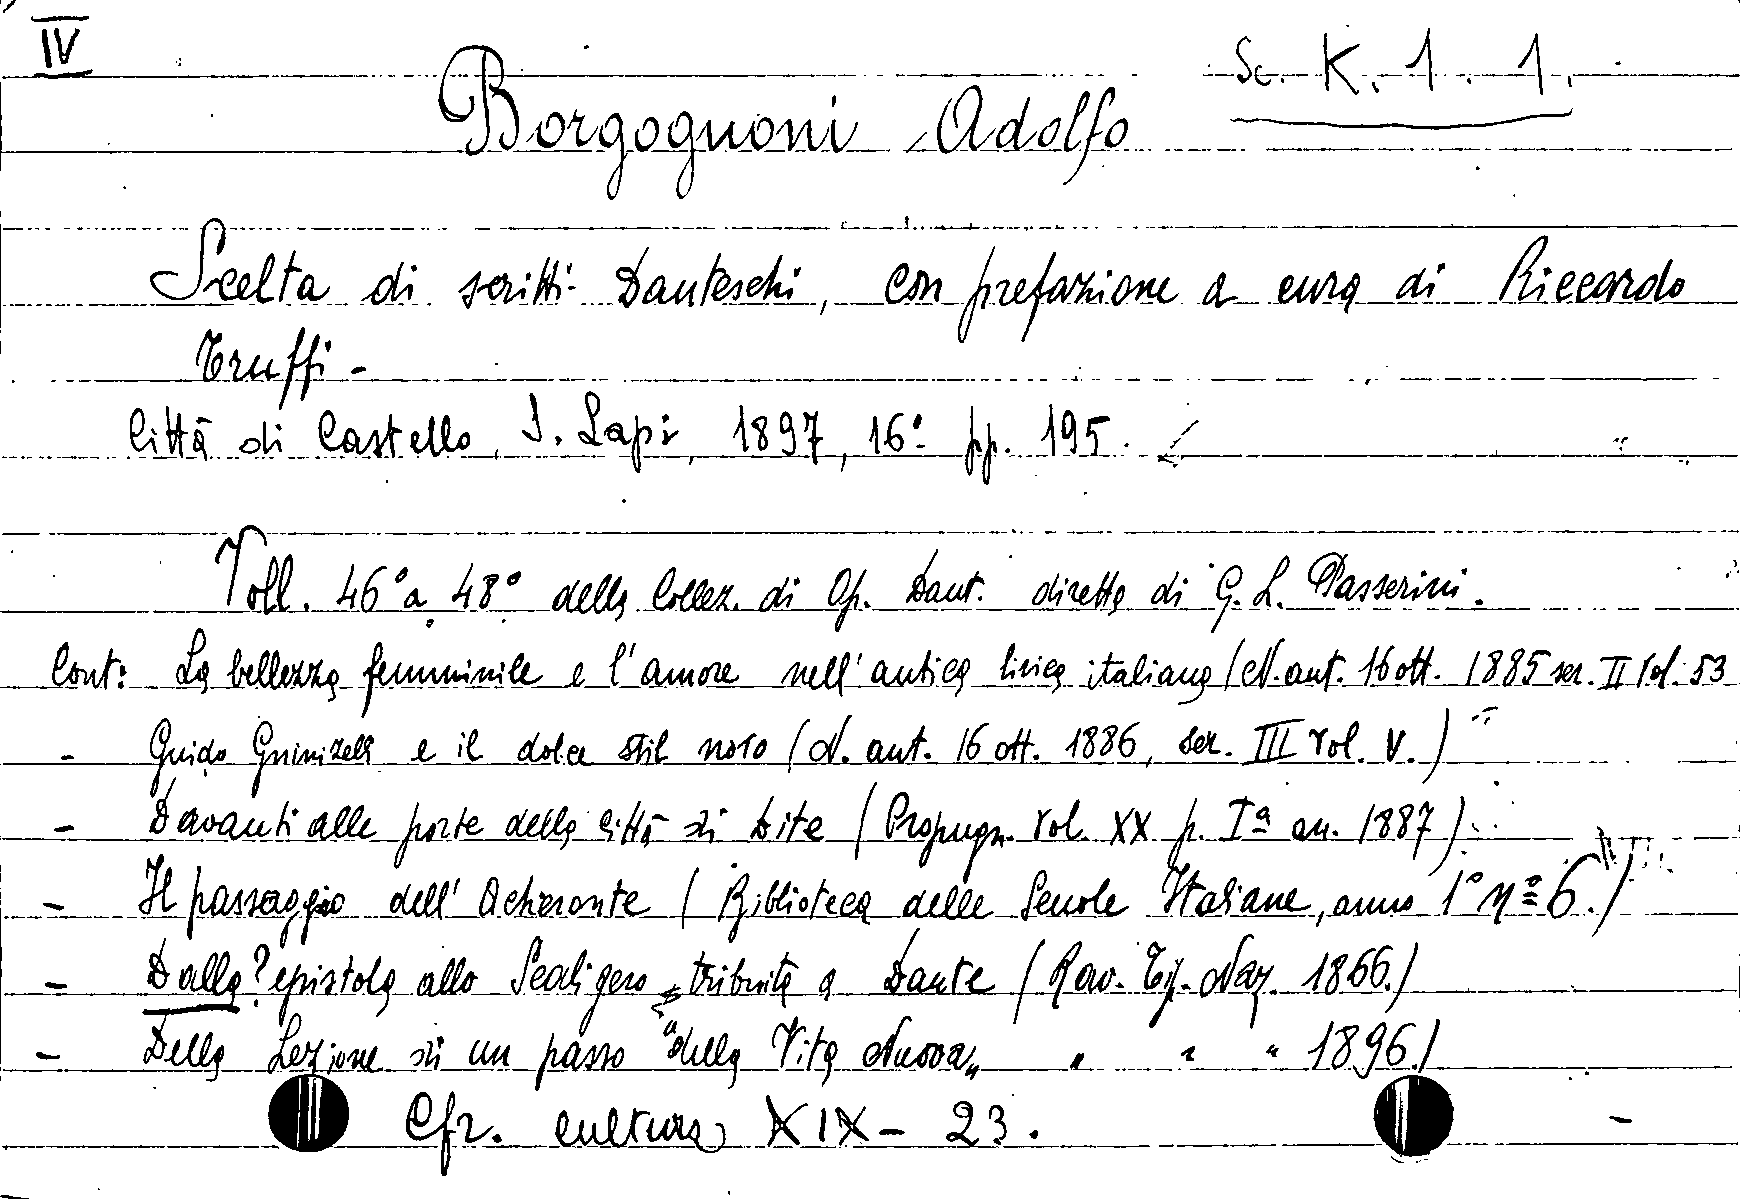 IV
Sc. K. 1. 1.
Borgognoni Adolfo
Scelta di scritti Danteschi, con prefazione a cura di Riccardo
Truffi -
Città di Castello, S. Lapi, 1897, 16° pp. 195.
Voll. 46° a 48° della Collez. di Op. Dant. diretta di G. L. Passerini.
Cont: La bellezza femminile e l'amore nell'antica lirica italiana (N. ant. 16 ott. 1885 ser. II Vol. 53
- Guido Guinizelli e il dolce stil novo (N. ant. 16 ott. 1886, ser. III vol. V.)
- Davanti alle porte della città di Dite (Propugn. vol. XX p. Iª an. 1887)
- Il passaggio dell'Acheronte (Biblioteca delle Scuole Italiane, anno 1° N° 6.)
- Dalla? epistola allo Scaligero attribuita a Dante (Rav. Tip. Naz. 1866.)
- Della Lezione di un passo "della Vita Nuova„ " " " 1896.)
Cfr. cultura XIX - 23.